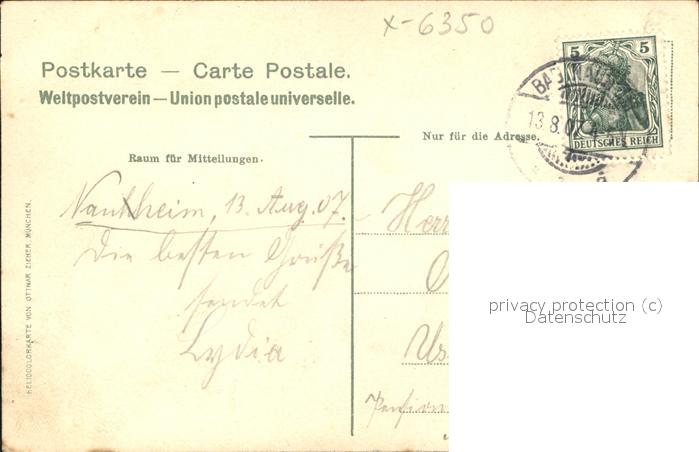 x-6350
Postkarte — Carte Postale.
Weltpostverein — Union postale universelle.
5 5
DEUTSCHES REICH
BAD NAUHEIM
13.8.07
Nur für die Adresse.
Raum für Mitteilungen.
Nauheim, 13. Aug. 07.
Die besten Grüße
sendet
Lydia
Herr
Us
Pension
privacy protection (c)
Datenschutz
HELIOCOLORKARTE VON OTTMAR ZIEHER, MÜNCHEN.